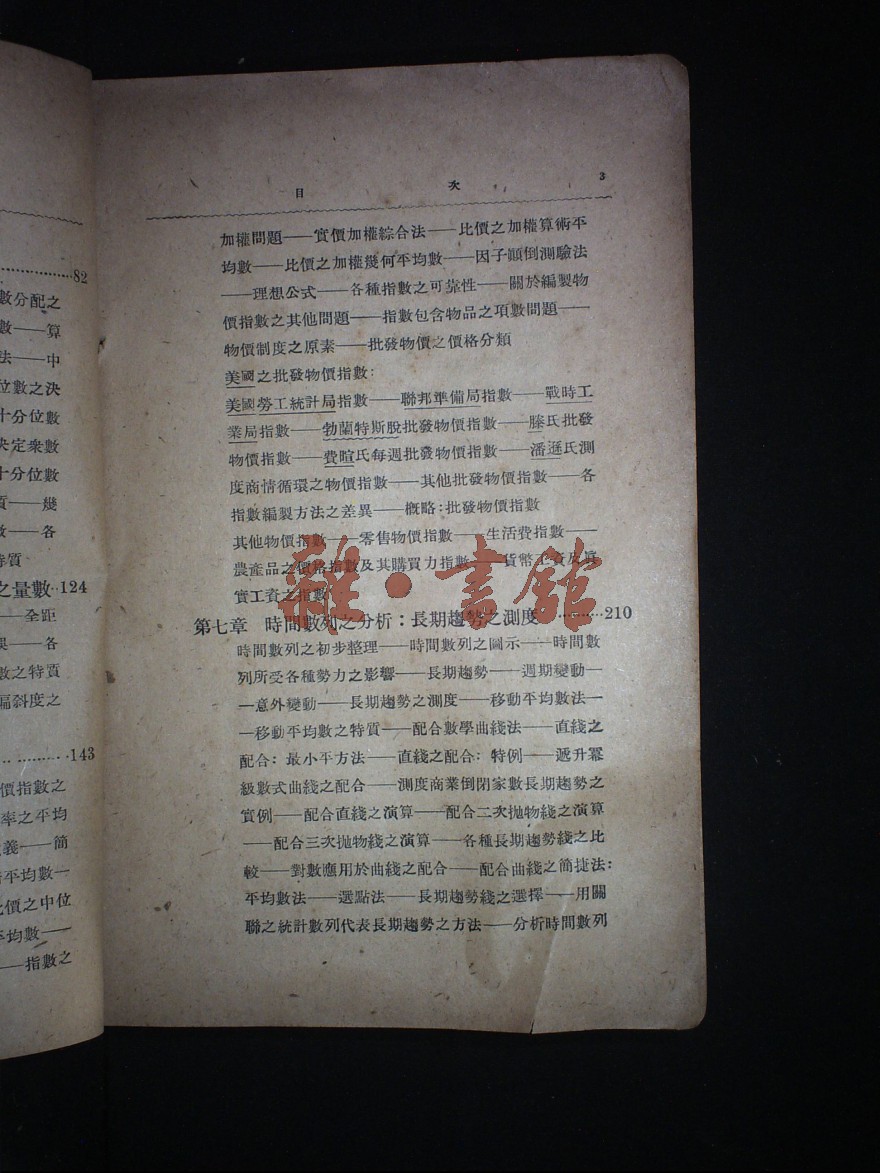 82
數分配之
數——算
法——中
位數之決
十分位數
決定衆數
十分位數
質——幾
數——各
特質
之量數··124
——全距
誤——各
數之特質
偏斜度之
143
價指數之
率之平均
義——簡
平均數—
比價之中位
平均數——
——指數之
目 次 3
加權問題——實價加權綜合法——比價之加權算術平
均數——比價之加權幾何平均數——因子顚倒測驗法
——理想公式——各種指數之可靠性——關於編製物
價指數之其他問題——指數包含物品之項數問題——
物價制度之原素——批發物價之價格分類
美國之批發物價指數:
美國勞工統計局指數——聯邦準備局指數——戰時工
業局指數——勃蘭特斯脫批發物價指數——滕氏批發
物價指數——費暄氏每週批發物價指數——潘遜氏測
度商情循環之物價指數——其他批發物價指數——各
指數編製方法之差異——槪略:批發物價指數
其他物價指數——零售物價指數——生活費指數——
農產品之價格指數及其購買力指數——貨幣工資及眞
實工資之指數
雜·書館
第七章 時間數列之分析:長期趨勢之測度 ··········210
時間數列之初步整理——時間數列之圖示——時間數
列所受各種勢力之影響——長期趨勢——週期變動—
—意外變動——長期趨勢之測度——移動平均數法—
—移動平均數之特質——配合數學曲綫法——直綫之
配合:最小平方法——直綫之配合:特例——遞升冪
級數式曲綫之配合——測度商業倒閉家數長期趨勢之
實例——配合直綫之演算——配合二次拋物綫之演算
——配合三次拋物綫之演算——各種長期趨勢綫之比
較——對數應用於曲綫之配合——配合曲綫之簡捷法:
平均數法——選點法——長期趨勢綫之選擇——用關
聯之統計數列代表長期趨勢之方法——分析時間數列